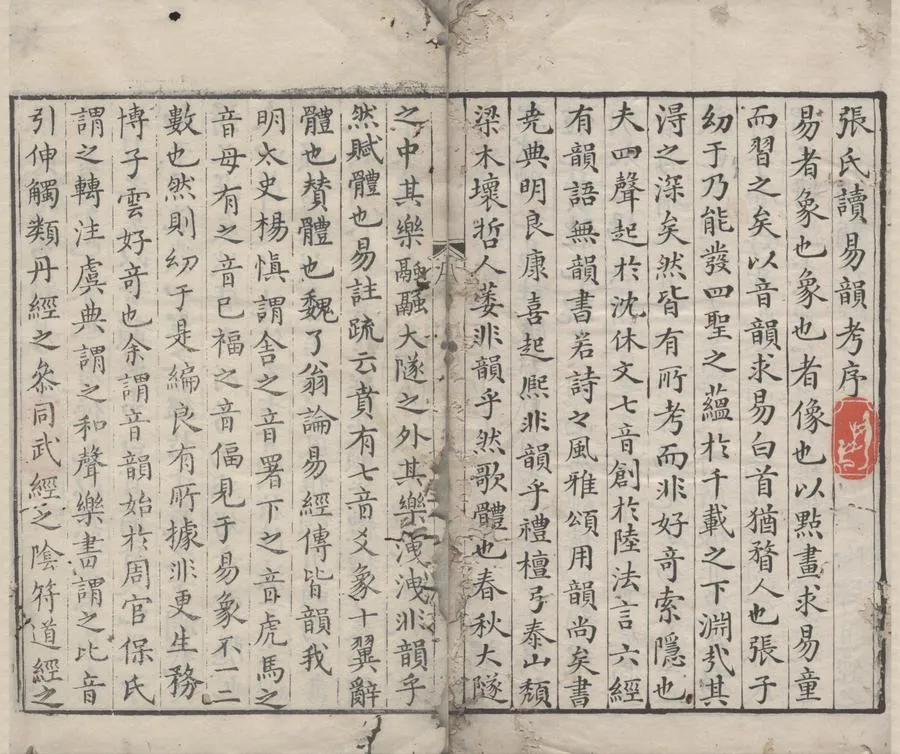 張氏讀易韻考序
易者象也象也者像也以點畫求易童
而習之矣以音韻求易白首猶瞀人也張子
幼于乃能發四聖之蘊於千載之下淵㢤其
淂之深矣然皆有所考而非好竒索隱也
夫四聲起於沈休文七音創於陸法言六經
有韻語無韻書若詩之風雅頌用韻尚矣書
尭典明良康喜起熙非韻乎禮檀弓泰山頹
梁木壞哲人萎非韻乎然歌體也春秋大隧
之中其樂融融大隧之外其樂洩洩非韻乎
然賦體也易註疏云賁有七音爻象十翼辭
體也賛體也魏了翁論易經傳皆韻我
明太史楊慎謂舎之音署下之音虎馬之
音母有之音巳福之音偪見于易象不一二
數也然則幼于是編良有所據非更生務
博子雲好竒也余謂音韻始於周官保氏
謂之轉注虞典謂之和聲樂書謂之比音
引伸觸類丹經之叅同武經之陰符道經之